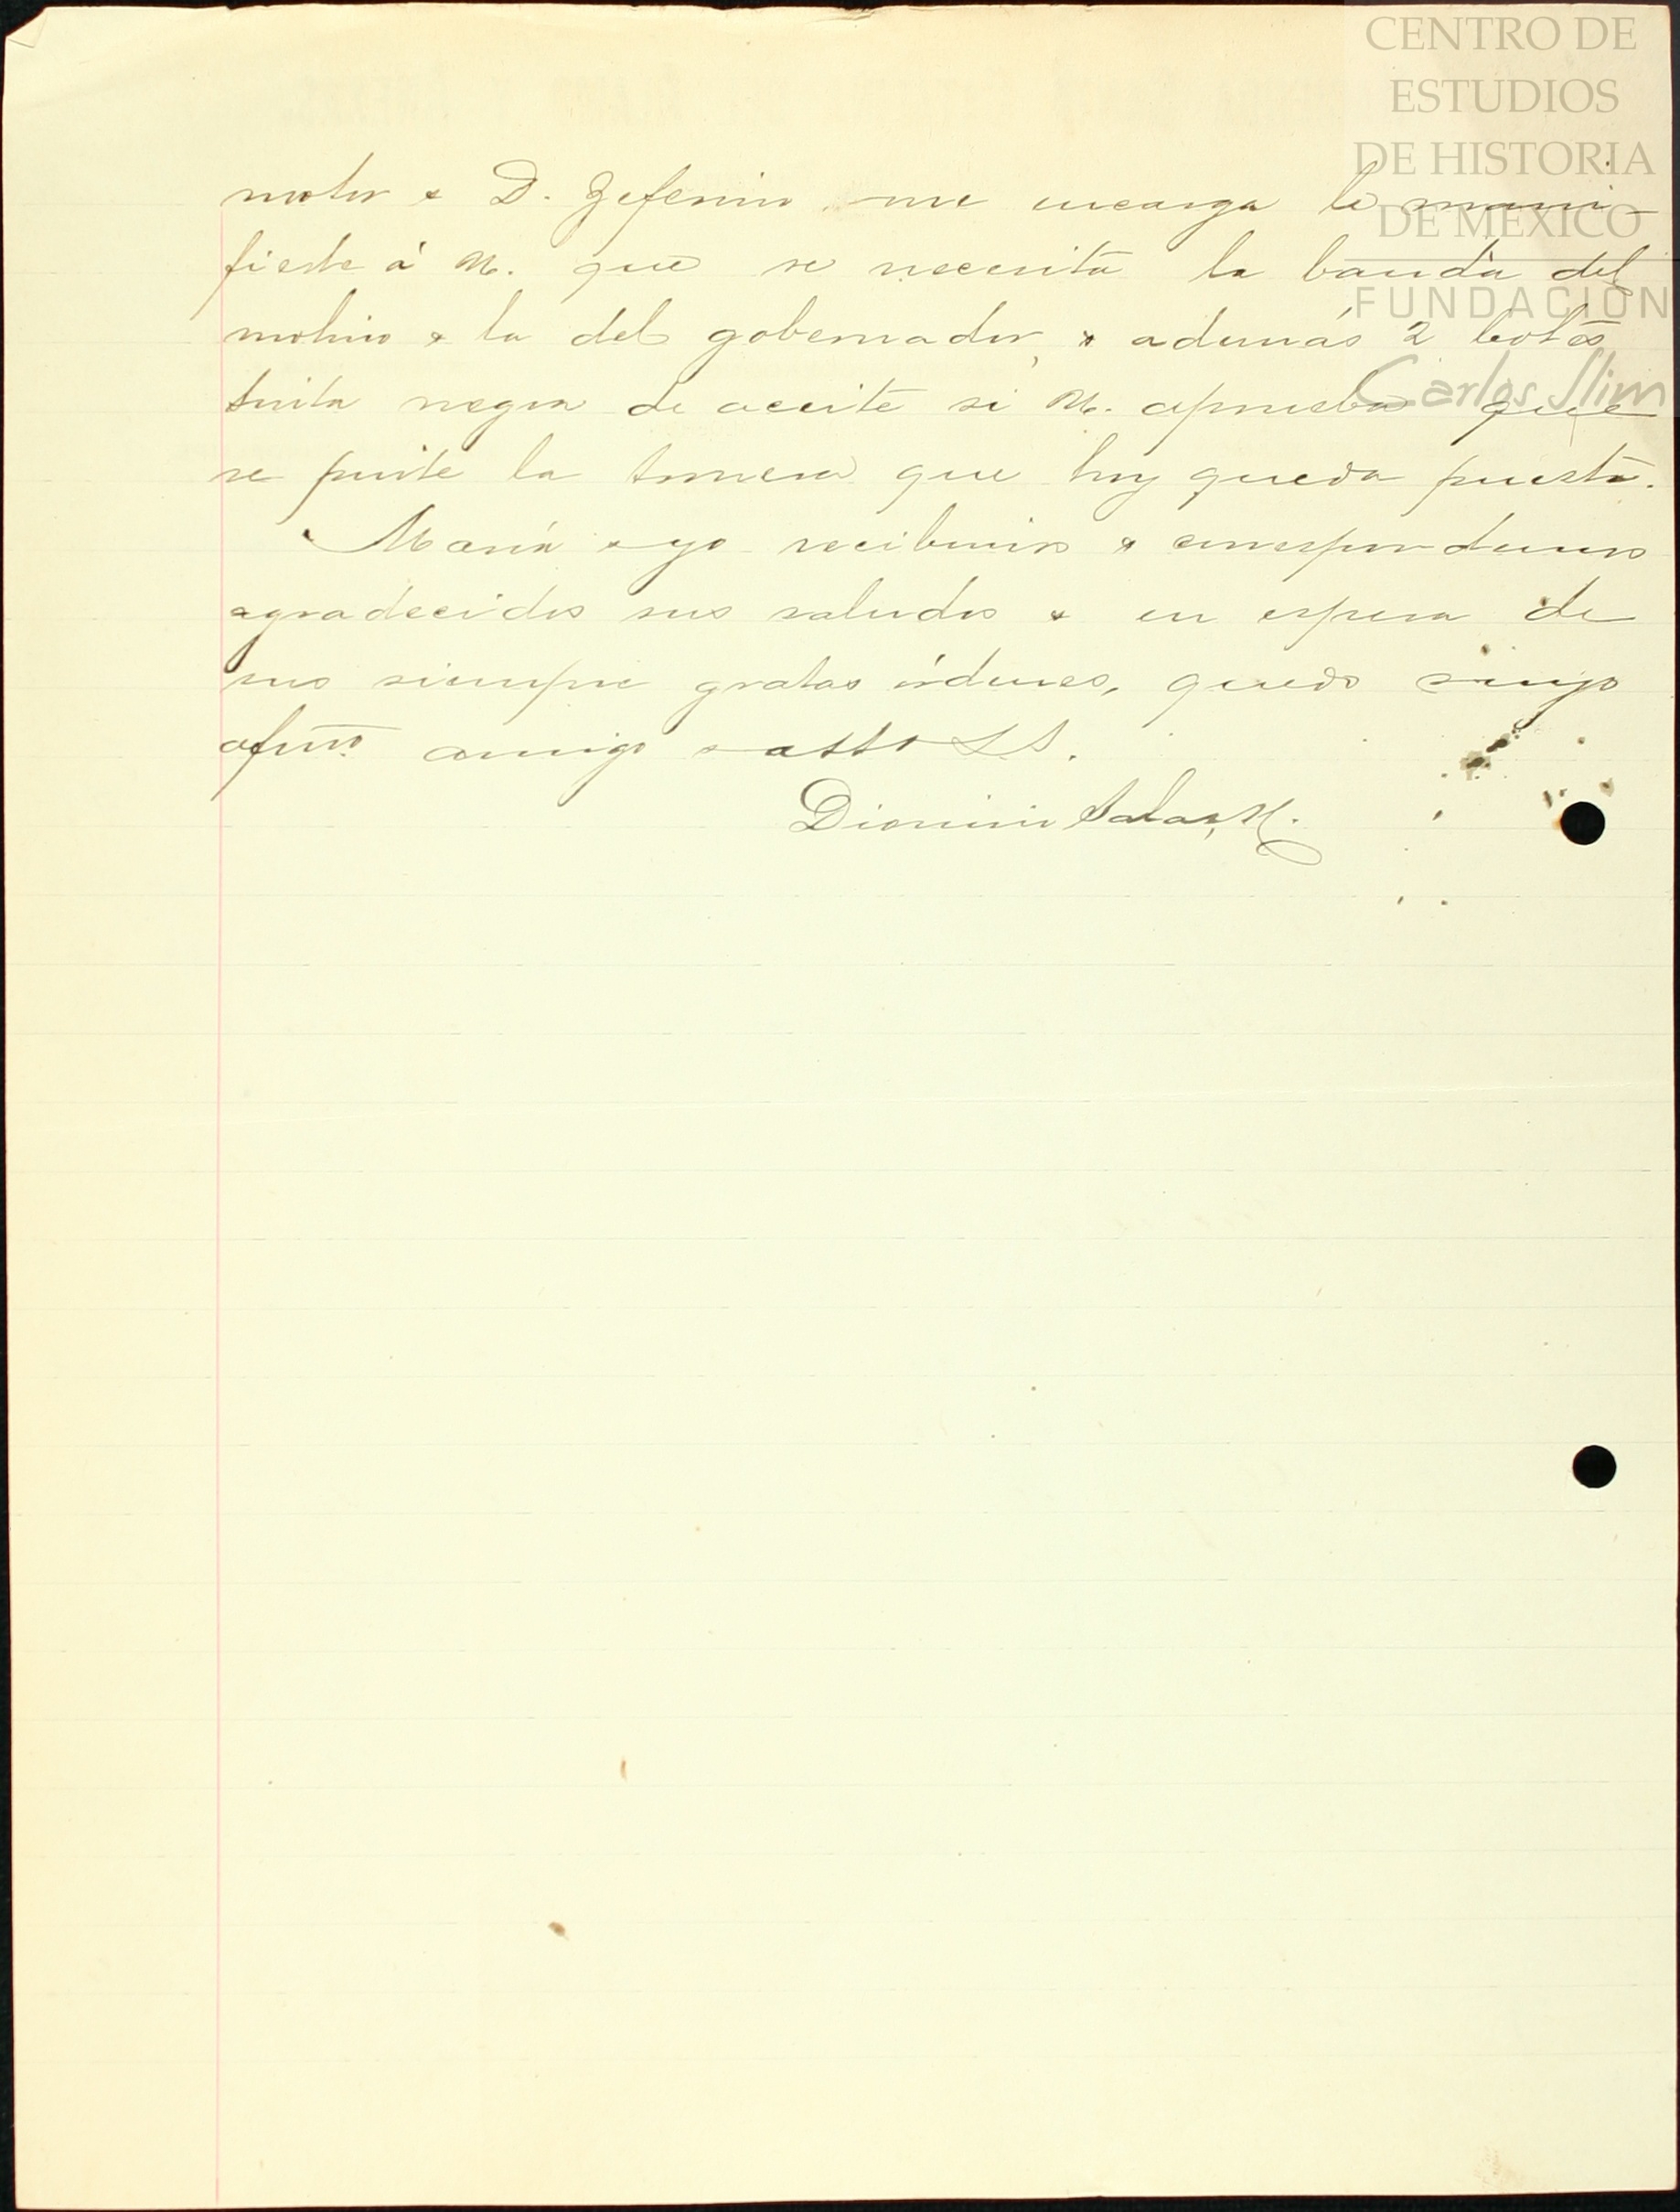 CENTRO DE
ESTUDIOS
DE HISTORIA
DE MEXICO
FUNDACION
Carlos Slim
motor & D. Zeferino me encarga le mani-
fieste á U. que se necesita la banda del
molino & la del gobernador, & además 2 botes
tinta negra de aceite si U. aprueba que
se pinte la tronera que hoy queda puesta.
María & yo recibimos & correspondemos
agradecidos sus saludos & en espera de
sus siempre gratas órdenes, quedo suyo
afmo. amigo & atto S.S.
Dionisio Salas